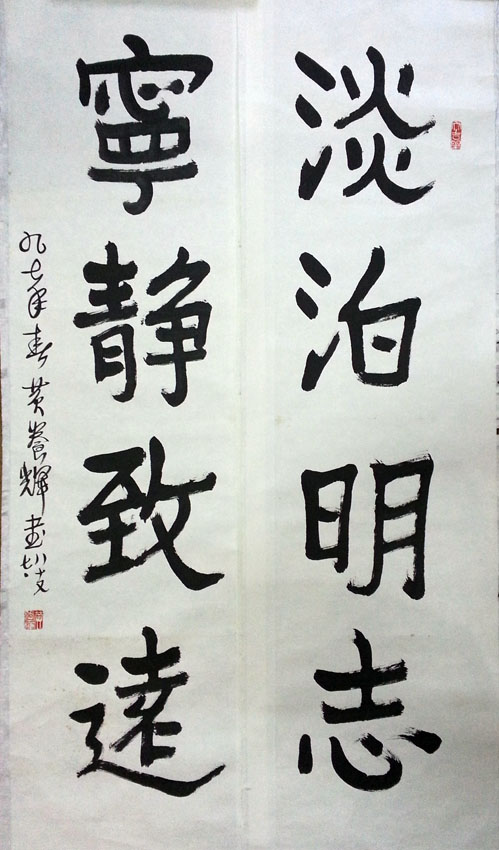 淡泊明志
寧靜致遠
九七年春黄養輝书